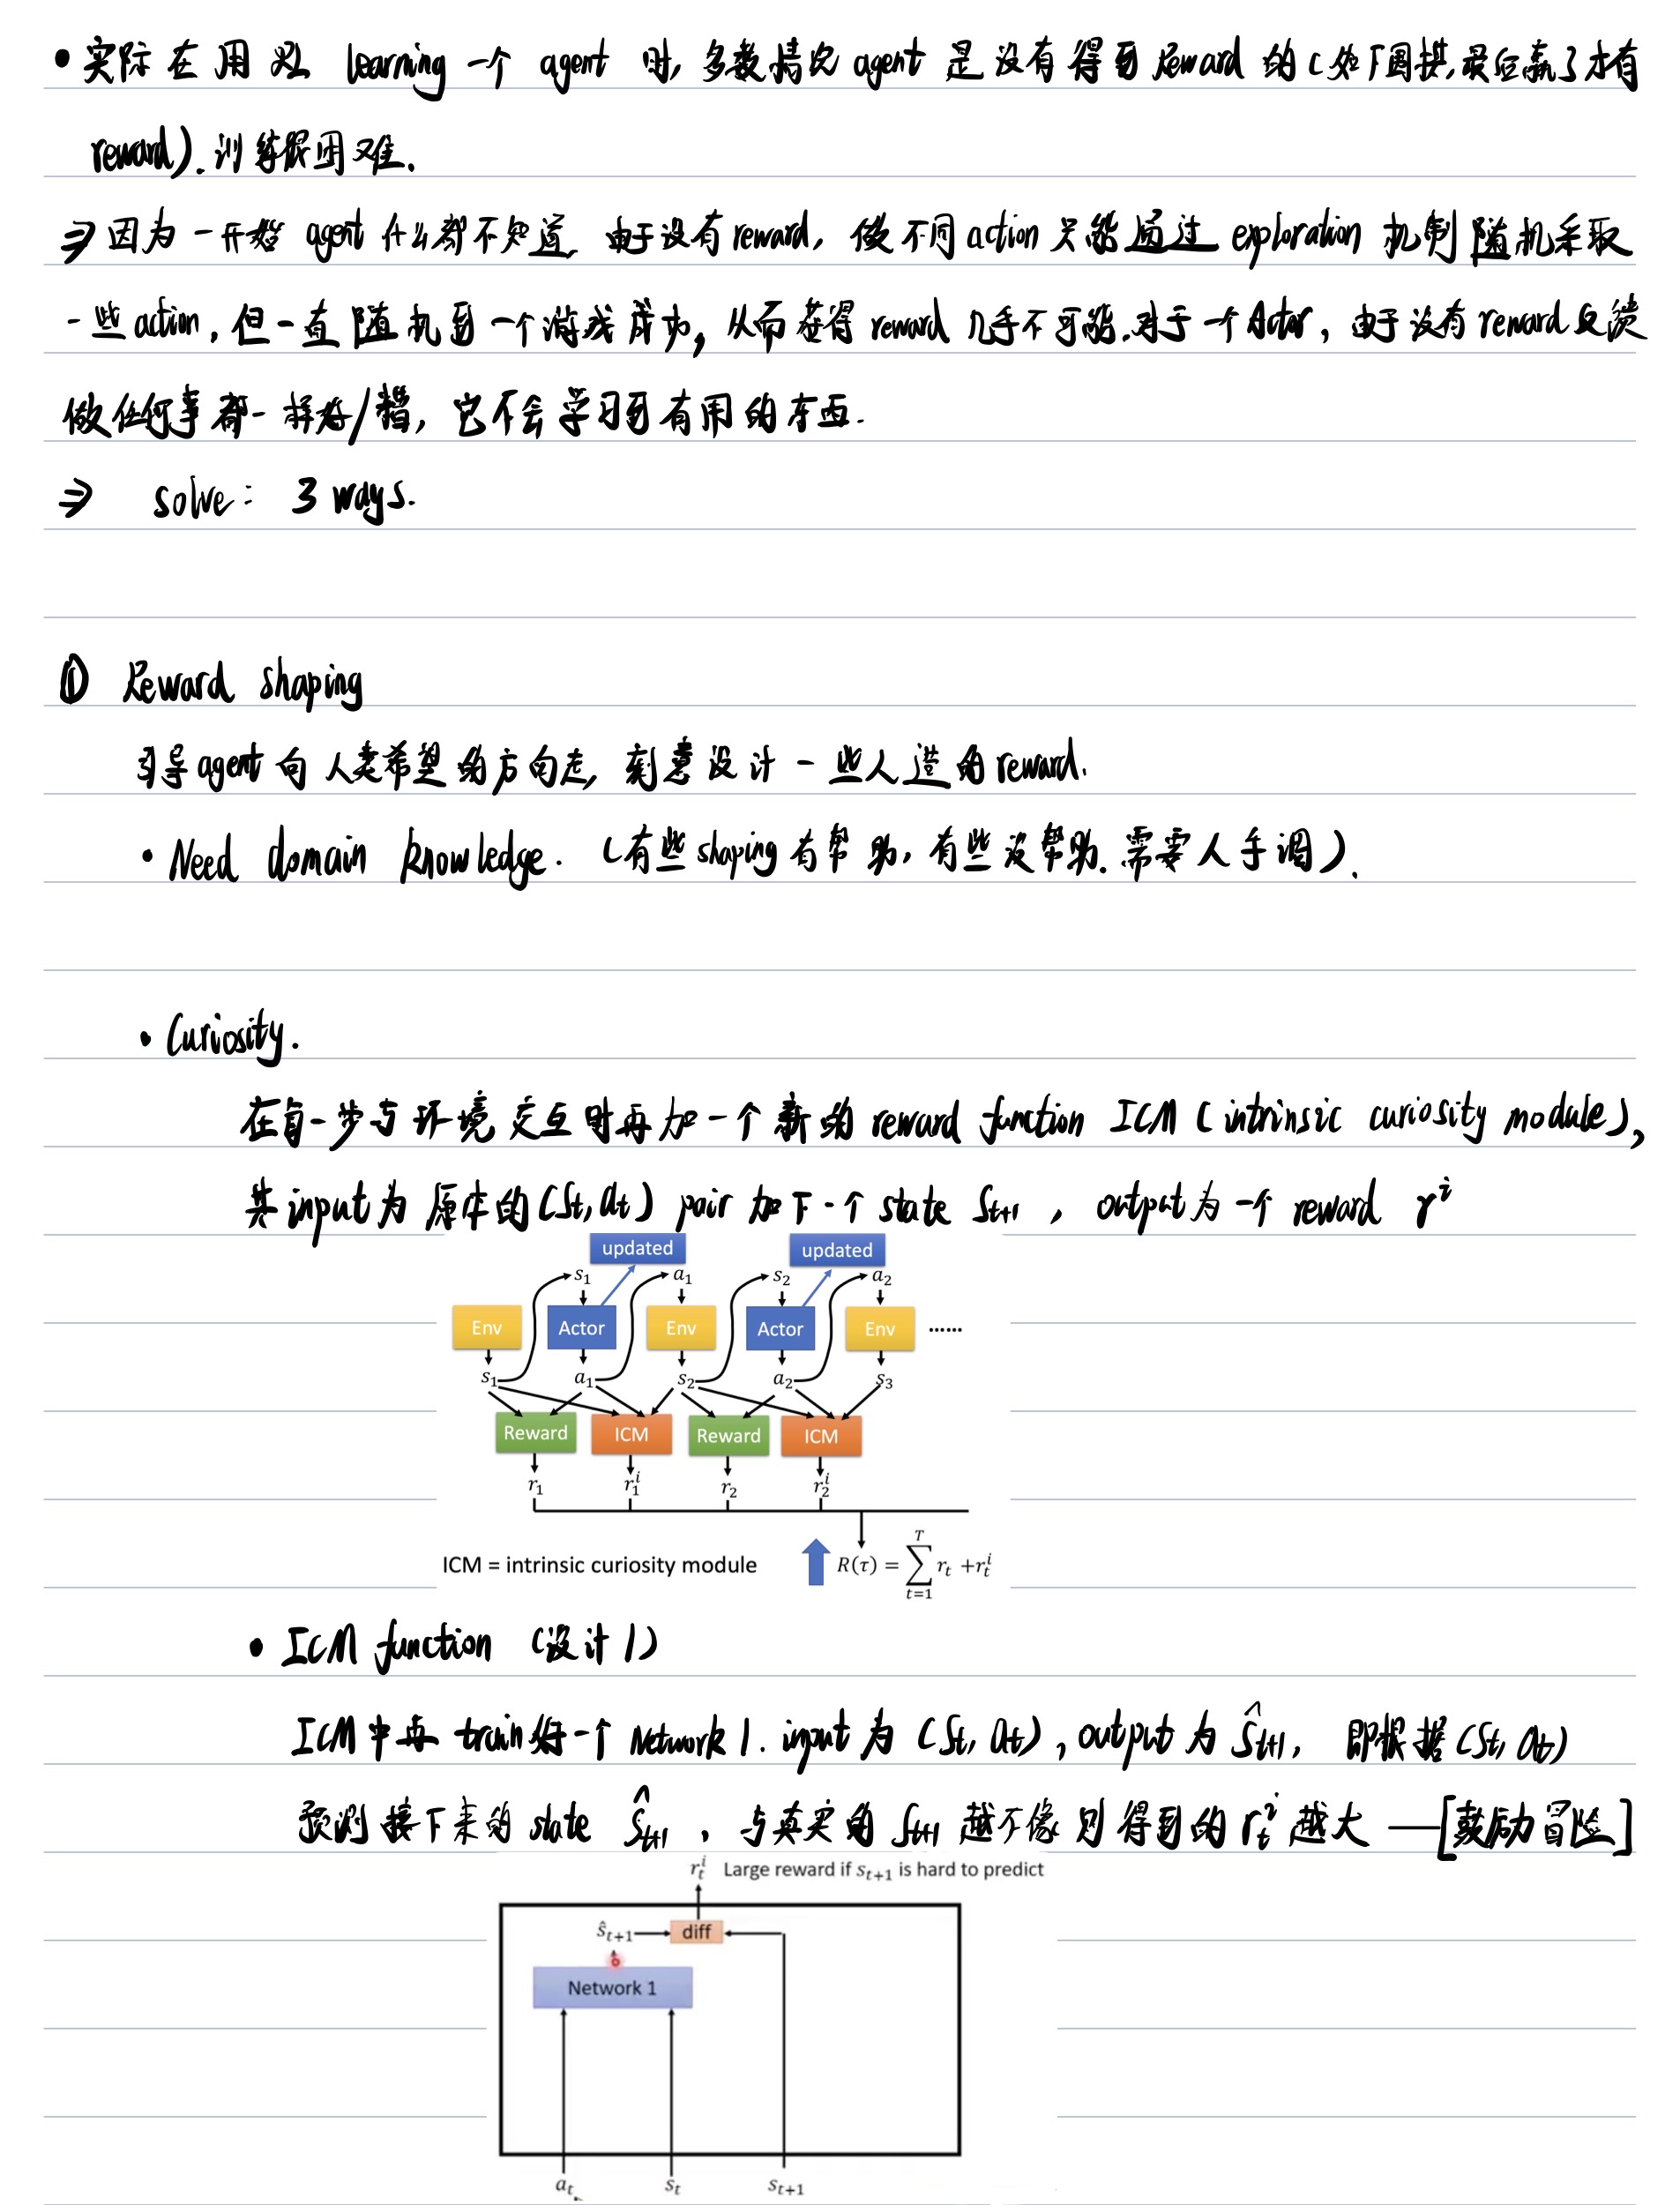 • 实际在用 RL learning 一个 agent 时, 多数情况 agent 是没有得到 Reward 的 (如下围棋, 最后赢了才有
reward). 训练很困难.
⇒ 因为一开始 agent 什么都不知道, 由于没有 reward, 做不同 action 只能通过 exploration 机制随机采取
一些 action, 但一直随机到一个游戏成功, 从而获得 reward 几乎不可能. 对于一个 Actor, 由于没有 reward 反馈
做任何事都一样好/糟, 它不会学习到有用的东西.
⇒ solve: 3 ways.
① Reward shaping
引导 agent 向人类希望的方向走, 刻意设计一些人造的 reward.
• Need domain knowledge. (有些 shaping 有帮助, 有些没帮助. 需要人手调).
• Curiosity.
在每一步与环境交互时再加一个新的 reward function ICM (intrinsic curiosity module),
其 input 为原本的 (St, at) pair 加下一个 state St+1, output 为一个 reward r^i
updated updated
s₁ a₁ s₂ a₂
Env Actor Env Actor Env ......
s₁ a₁ s₂ a₂ s₃
Reward ICM Reward ICM
r₁ r₁^i r₂ r₂^i
ICM = intrinsic curiosity module R(τ) = ∑_{t=1}^{T} r_t + r_t^i
• ICM function (设计1)
ICM 中再 train 好一个 Network 1. input 为 (St, at), output 为 Ŝt+1, 即根据 (St, at)
预测接下来的 state Ŝt+1, 与真实的 St+1 越不像则得到的 r_t^i 越大 —[鼓励冒险]
r_t^i Large reward if s_{t+1} is hard to predict
ŝ_{t+1} diff
Network 1
a_t s_t s_{t+1}